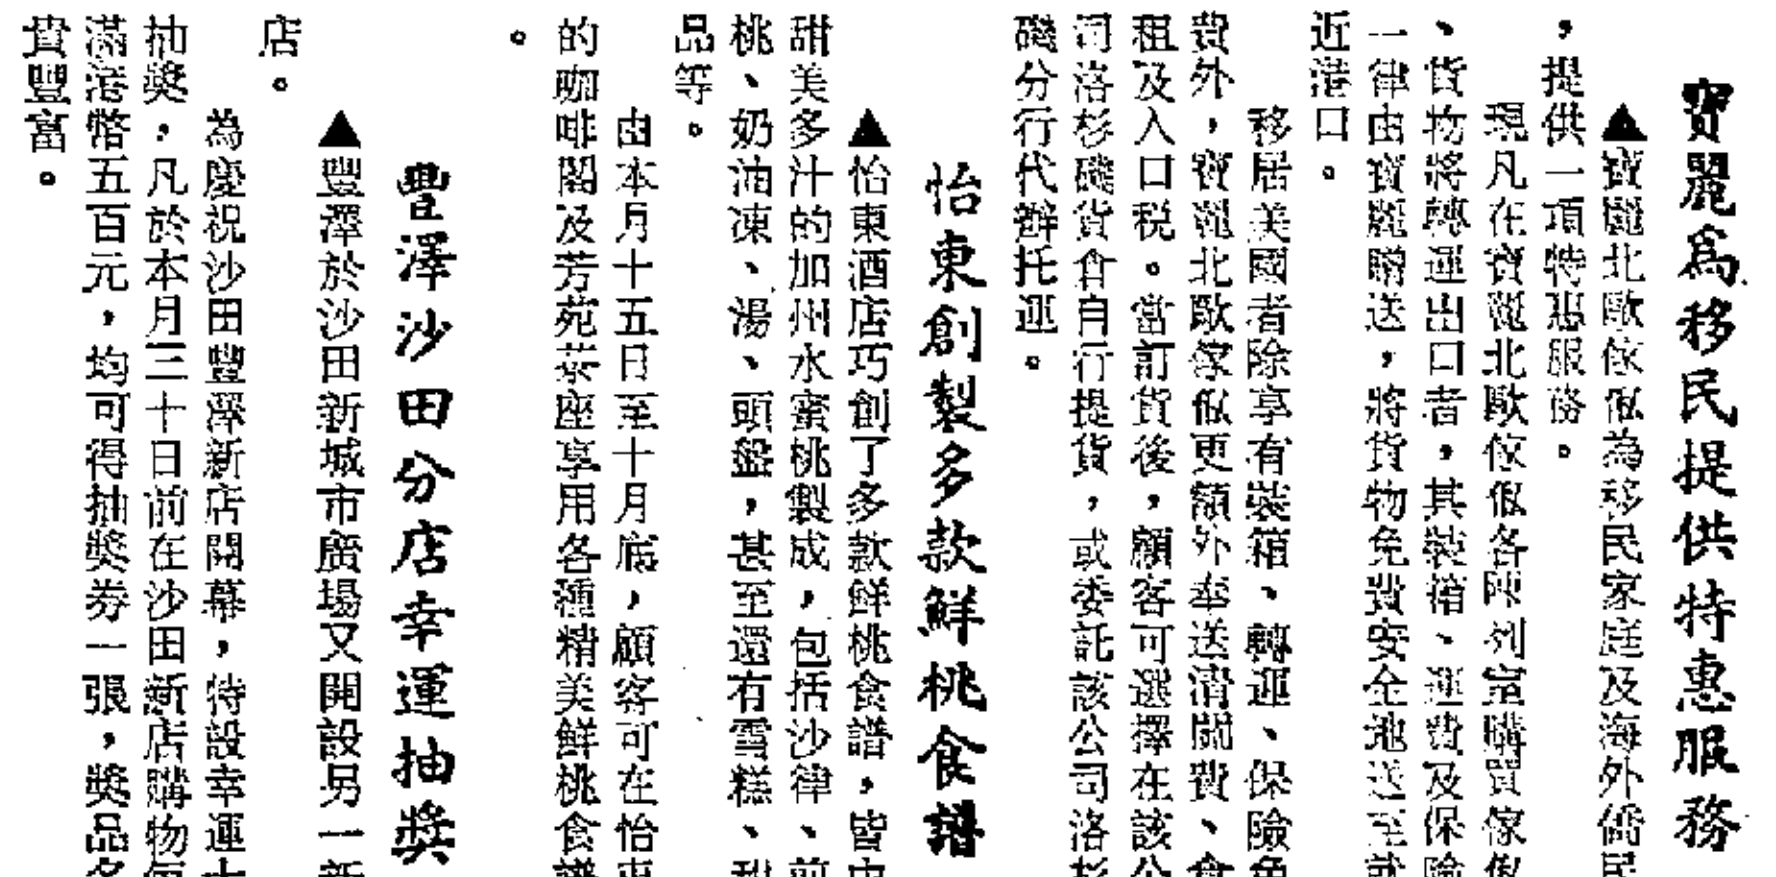 寶麗為移民提供特惠服務
▲寶麗北歐傢俬為移民家庭及海外僑民
，提供一項特惠服務。
現凡在寶麗北歐傢俬各陳列室購買傢俬
、貨物將轉運出口者，其裝箱、運費及保險
一律由寶麗贈送，將貨物免費安全地送至就
近港口。
移居美國者除享有裝箱、轉運、保險免
費外，寶麗北歐傢俬更額外奉送清關費、倉
租及入口税。當訂貨後，顧客可選擇在該公
司洛杉磯貨倉自行提貨，或委託該公司洛杉
磯分行代辦托運。
怡東創製多款鮮桃食譜
▲怡東酒店巧創了多款鮮桃食譜，皆由
甜美多汁的加州水蜜桃製成，包括沙律、前
桃、奶油凍、湯、頭盤，甚至還有雪糕、甜
品等。
由本月十五日至十月底，顧客可在怡東
的咖啡閣及芳苑茶座享用各種精美鮮桃食譜
。
豐澤沙田分店幸運抽獎
▲豐澤於沙田新城市廣場又開設另一新
店。
為慶祝沙田豐澤新店開幕，特設幸運大
抽獎，凡於本月三十日前在沙田新店購物每
滿港幣五百元，均可得抽獎券一張，獎品名
貴豐富。